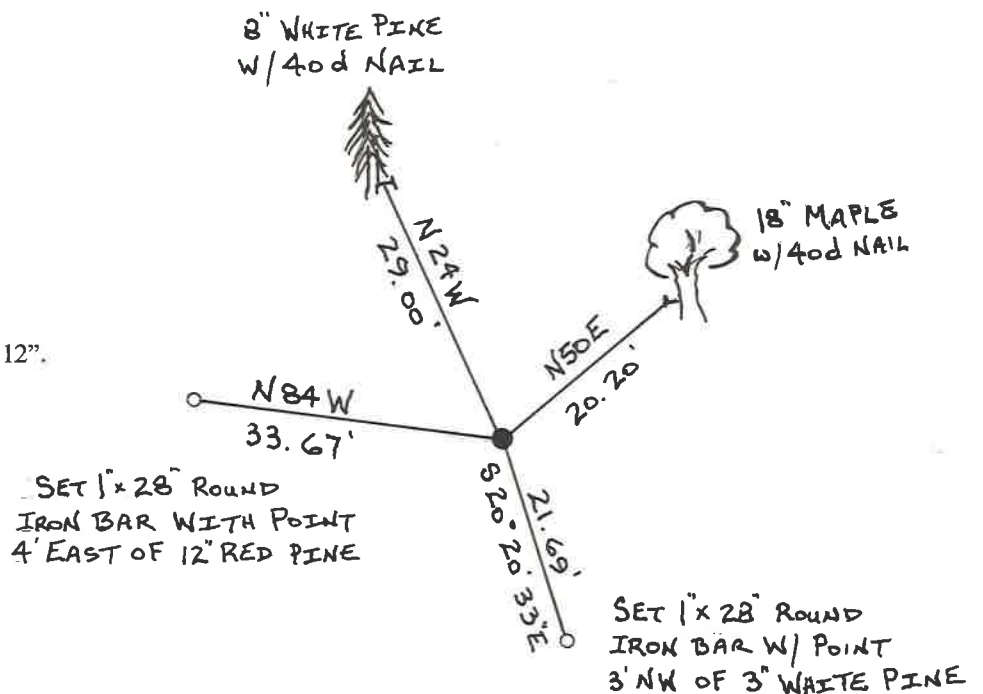 8" WHITE PINE
W/40d NAIL
18" MAPLE
w/40d NAIL
N24W
29.00'
N50E
20.20'
12”.
N84W
33.67'
SET 1"x 28" ROUND
IRON BAR WITH POINT
4' EAST OF 12" RED PINE
21.69'
S20° 20' 33"E
SET 1"x 28" ROUND
IRON BAR W/ POINT
3' NW OF 3" WHITE PINE